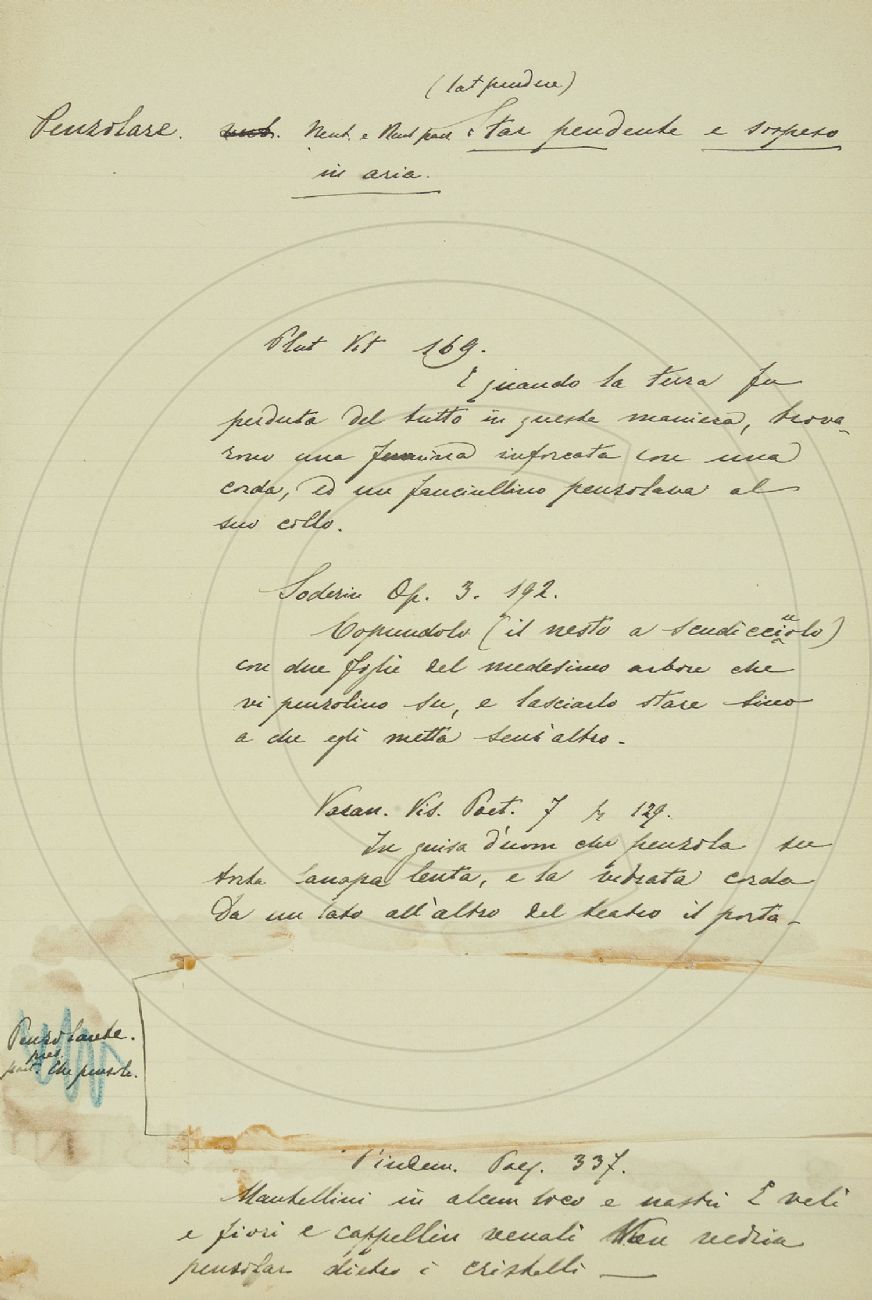 (lat pendere)
Penzolare. Neut. e Neut pass: Star pendente e sospeso
in aria.
Plut Vit 169.
E quando la terra fu
perduta del tutto in queste maniera, trova-
rono una femina inforcata con una
corda, ed un fanciullino penzolava al
suo collo.
Soderin Op. 3. 192.
Copendolo (il nesto a scudicciuolo)
con due foglie del medesimo arbore che
vi penzolino su, e lasciarlo stare sino
a che egli metta senz'altro.
Varan. Vis. Poet. 7 p. 129.
In guisa d'uom che penzola su
torta canapa lenta, e la vibrata corda
Da un lato all'altro del teatro il porta-
Penzolante.
pres
part. Che penzola.
Pindem. Poes. 337.
Mantellini in alcun loco e nastri E veli
e fiori e cappellin venali Non vedria
penzolar dietro i cristalli —